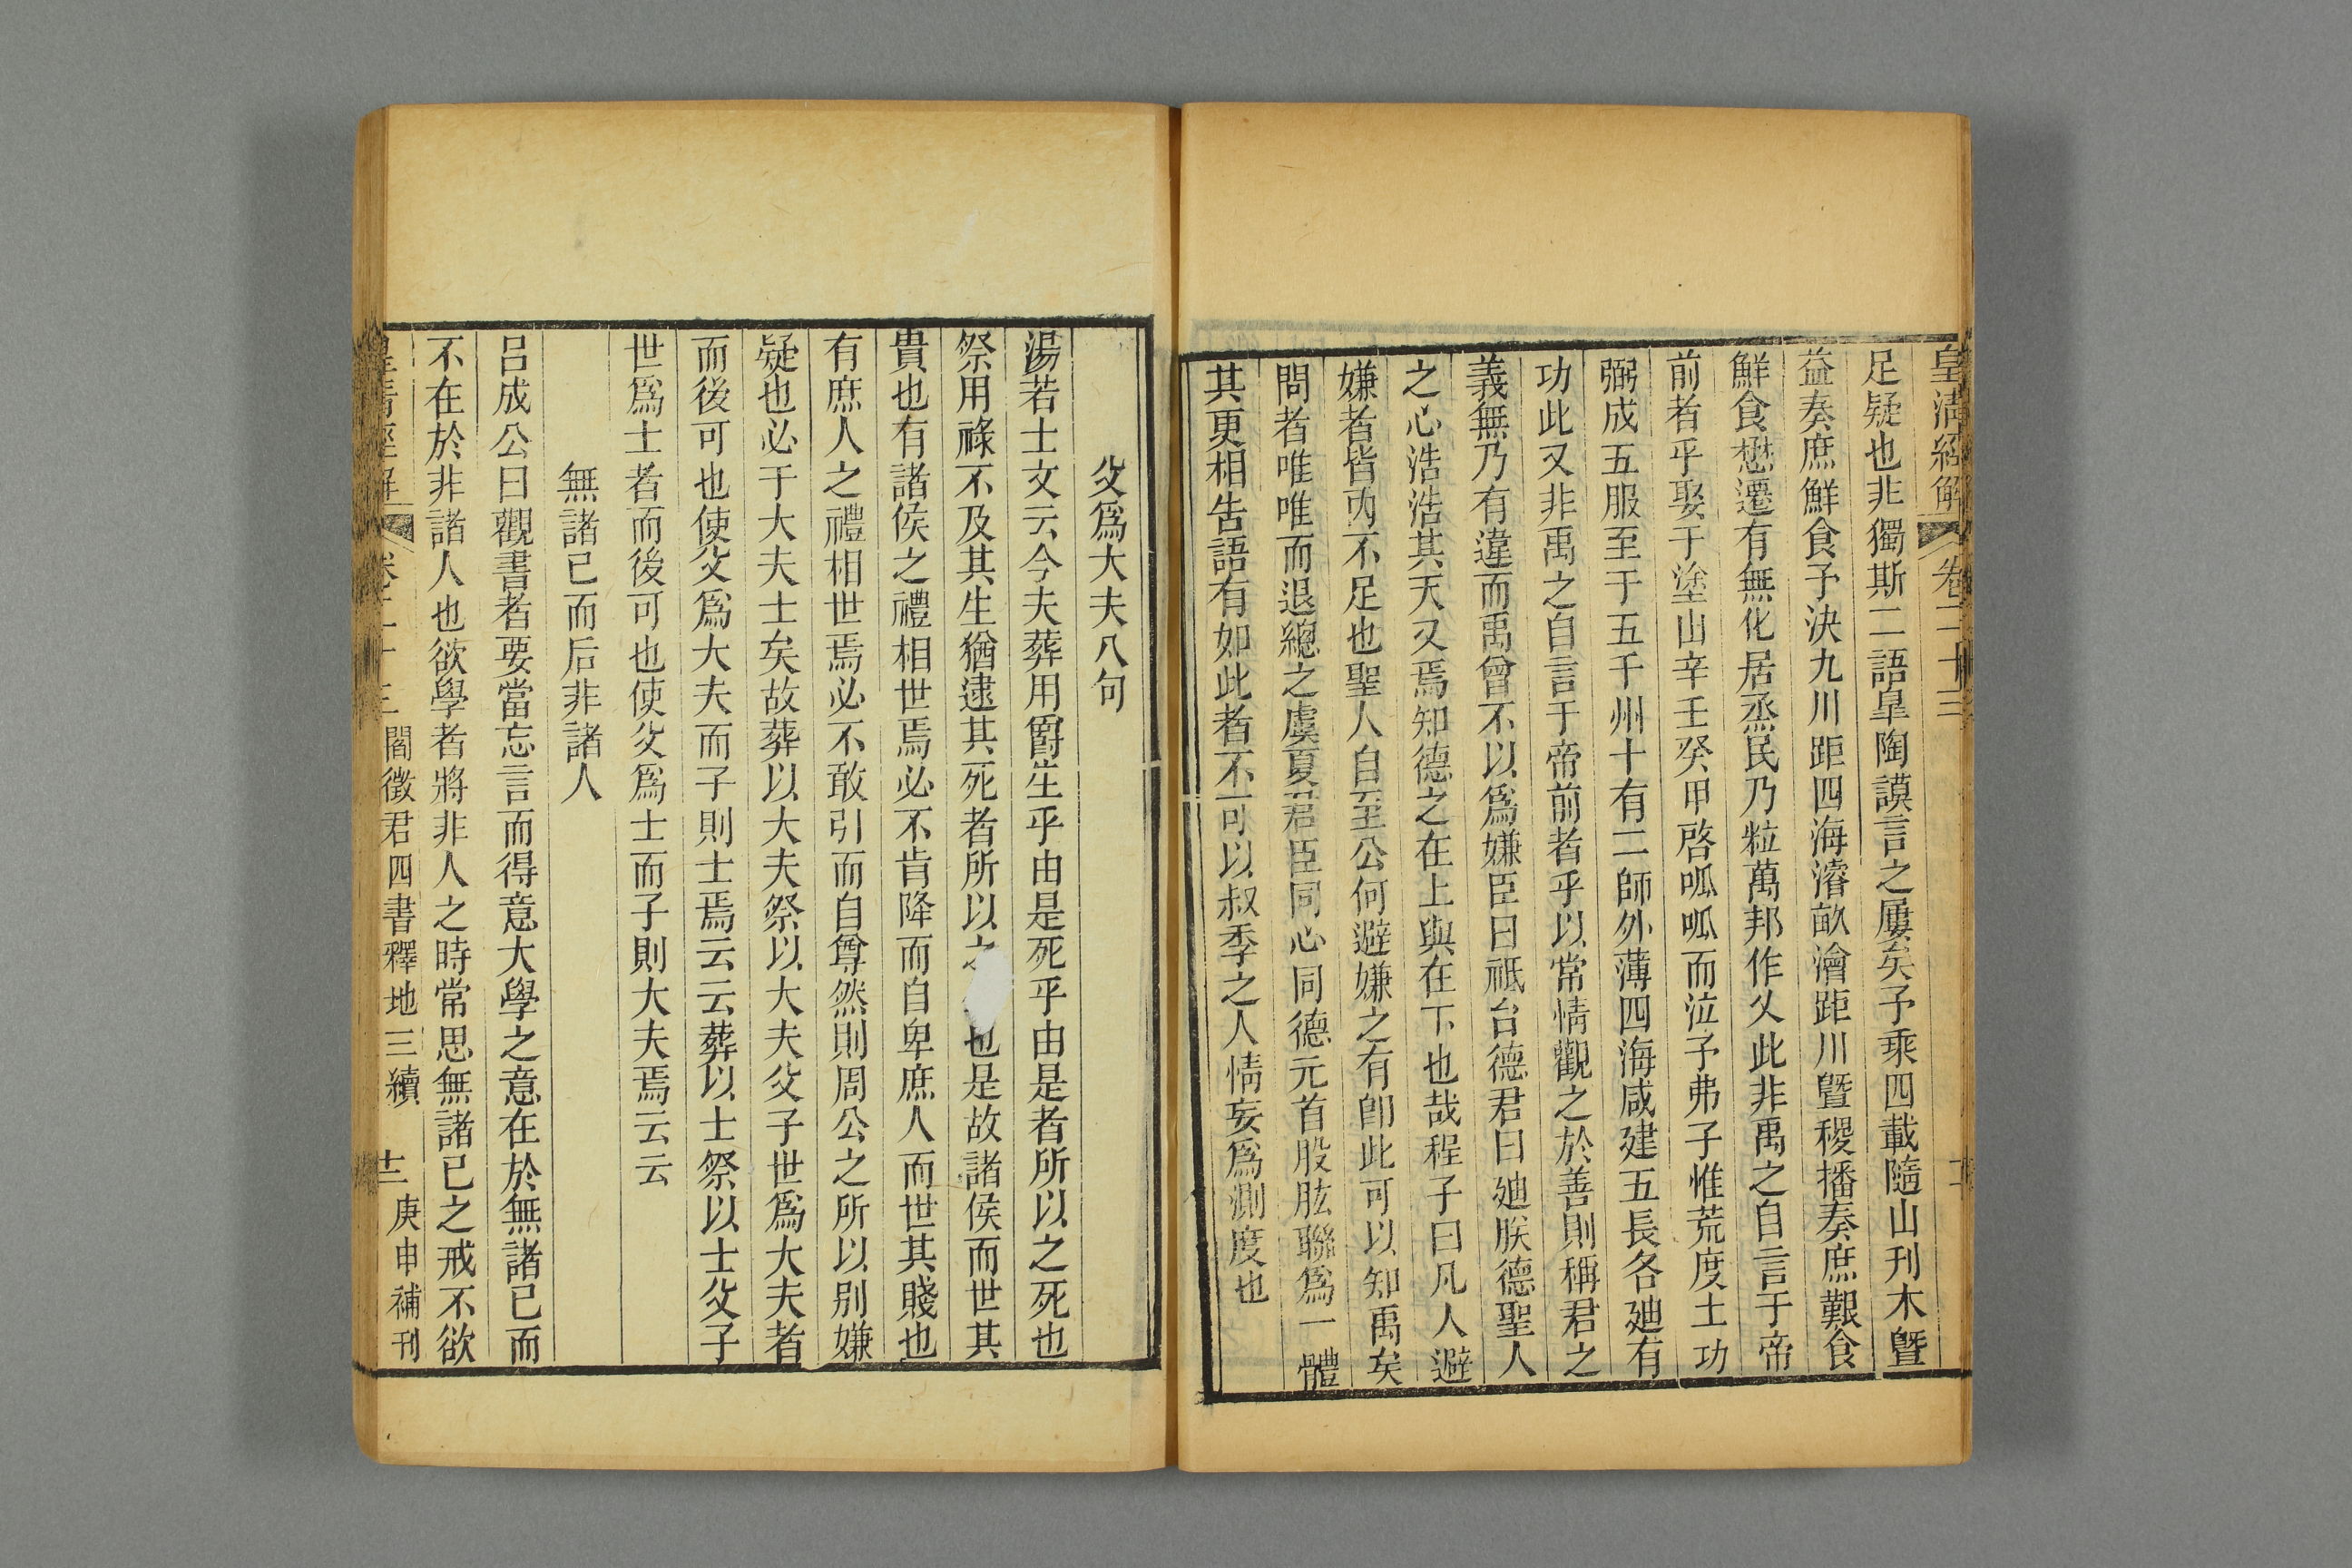 皇清經解 卷二十三
足疑也非獨斯二語皐陶謨言之屢矣予乘四載隨山刊木曁
益奏庶鮮食予決九川距四海濬畎澮距川曁稷播奏庶艱食
鮮食懋遷有無化居烝民乃粒萬邦作乂此非禹之自言于帝
前者乎娶于塗山辛壬癸甲啓呱呱而泣予弗子惟荒度土功
弼成五服至于五千州十有二師外薄四海咸建五長各廸有
功此又非禹之自言于帝前者乎以常情觀之於善則稱君之
義無乃有違而禹曾不以爲嫌臣曰祗台德君曰廸朕德聖人
之心浩浩其天又焉知德之在上與在下也哉程子曰凡人避
嫌者皆內不足也聖人自至公何避嫌之有卽此可以知禹矣
問者唯唯而退總之虞夏君臣同心同德元首股肱聯爲一體
其更相告語有如此者不可以叔季之人情妄爲測度也
父爲大夫八句
湯若士文云今夫葬用爵生乎由是死乎由是者所以之死也
祭用祿不及其生猶逮其死者所以之也是故諸侯而世其
貴也有諸侯之禮相世焉必不肯降而自卑庶人而世其賤也
有庶人之禮相世焉必不敢引而自尊然則周公之所以別嫌
疑也必于大夫士矣故葬以大夫祭以大夫父子世爲大夫者
而後可也使父爲大夫而子則士焉云云葬以士祭以士父子
世爲士者而後可也使父爲士而子則大夫焉云云
無諸己而后非諸人
呂成公曰觀書者要當忘言而得意大學之意在於無諸己而
不在於非諸人也欲學者將非人之時常思無諸己之戒不欲
皇清經解 卷二十三 閻徵君四書釋地三續 十二 庚申補刊